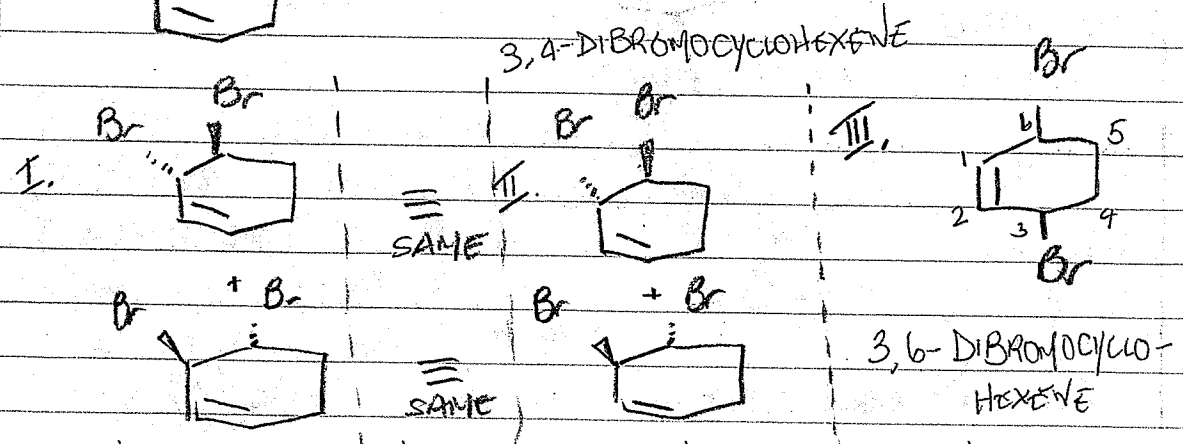 3,4-DIBROMOCYCLOHEXENE
Br
Br
I.
≡
SAME
Br
Br
II.
III.
Br
6
5
1
2
3
4
Br
+
Br
Br
≡
SAME
+
Br
Br
3,6-DIBROMOCYCLO-
HEXENE